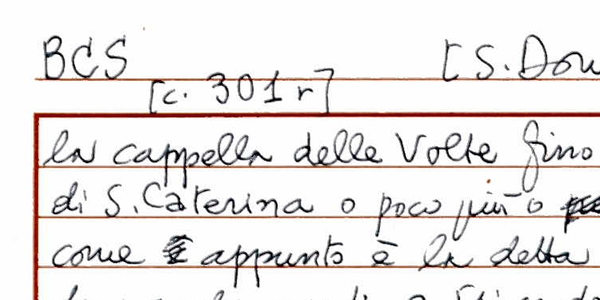 BCS [S. Dom
[c. 301 r]
la cappella delle Volte fino
di S. Caterina o poco più o
come appunto è la detta